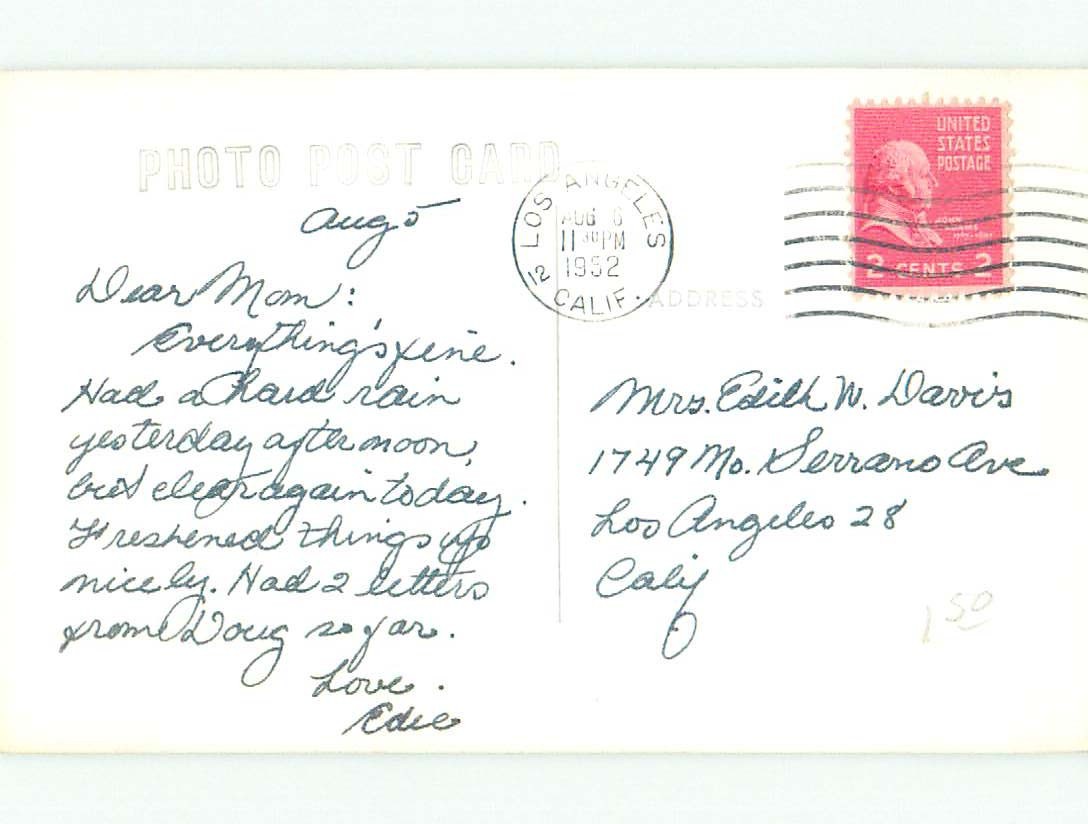 PHOTO POST CARD
Aug 5
Dear Mom:
Everything's fine.
Had a hard rain
yesterday afternoon,
but clear again today.
Freshened things up
nicely. Had 2 letters
from Doug so far.
Love.
Edie
LOS ANGELES
12 CALIF.
AUG 6
11 30 PM
1952
UNITED
STATES
POSTAGE
JOHN
ADAMS
2 CENTS 2
ADDRESS
Mrs. Edith W. Davis
1749 No. Serrano Ave
Los Angeles 28
Calif
1 50